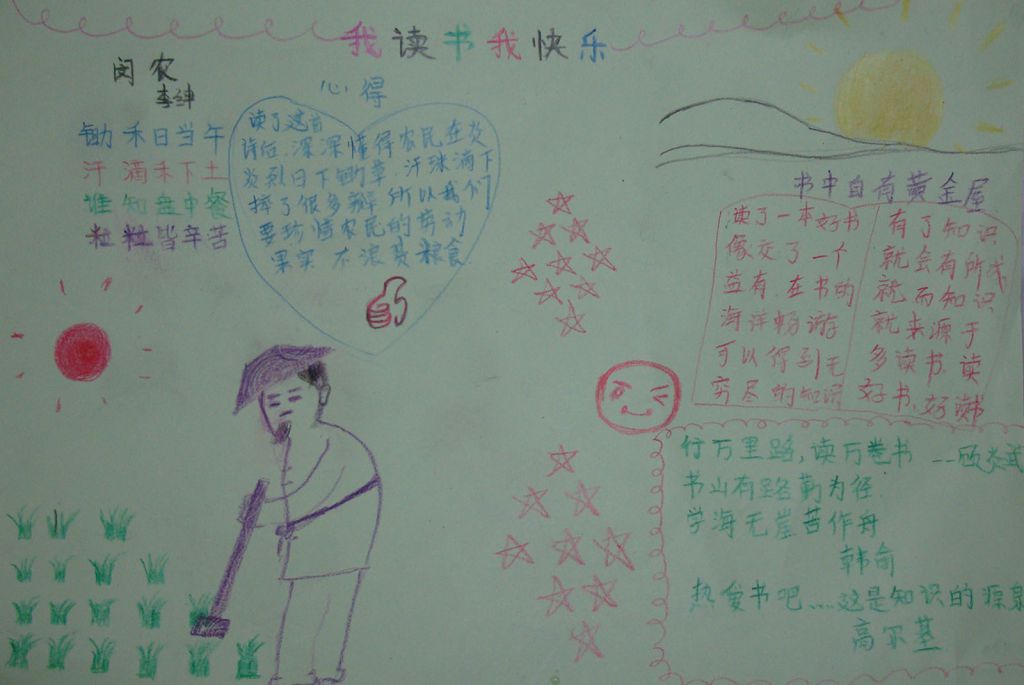 我读书我快乐
闵农
李绅
锄禾日当午
汗滴禾下土
谁知盘中餐
粒粒皆辛苦
心得
读了这首
诗后,深深懂得农民在炎
炎烈日下锄草,汗珠滴下
摔了很多瓣所以我们
要珍惜农民的劳动
果实不浪费粮食
书中自有黄金屋
读了一本好书
像交了一个
益有.在书的
海洋畅游
可以得到无
穷尽的知识
有了知识
就会有所成
就而知识
就来源于
多读书.读
好书、好读书
行万里路,读万卷书--顾炎武
书山有路勤为径.
学海无崖苦作舟
韩俞
热爱书吧....这是知识的源泉
高尔基